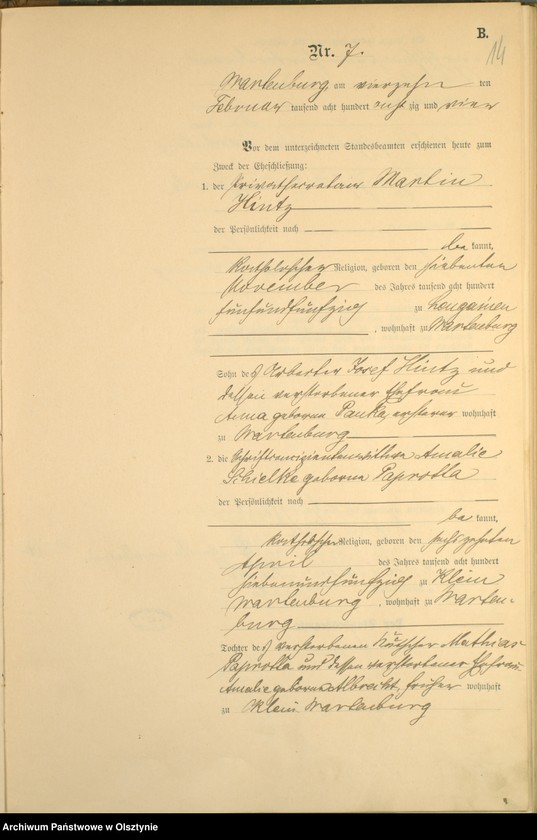 B.
14
Nr. 7.
Wartenburg am vierzehn ten
Februar tausend acht hundert acht zig und vier
Vor dem unterzeichneten Standesbeamten erschienen heute zum
Zweck der Eheschließung:
1. der Martin
Hintz
der Persönlichkeit nach
be kannt,
katholischer Religion, geboren den siebenten
November des Jahres tausend acht hundert
fünfundfünfzig zu Lengainen
, wohnhaft zu Wartenburg
Sohn des Arbeiter Josef Hintz und
dessen verstorbener Ehefrau
Anna geborene Panka, ersterer wohnhaft
zu Wartenburg
2. die Amalie
Schielke geborene Paprotta
der Persönlichkeit nach
be kannt,
katholischer Religion, geboren den sechszehnten
April des Jahres tausend acht hundert
siebenundfünfzig zu Klein
Wartenburg, wohnhaft zu Warten-
burg
Tochter des verstorbenen Kutscher Mathias
Paprotta und dessen verstorbener Ehefrau
Amalie geborene Albrecht, früher wohnhaft
zu Klein Wartenburg
Archiwum Państwowe w Olsztynie